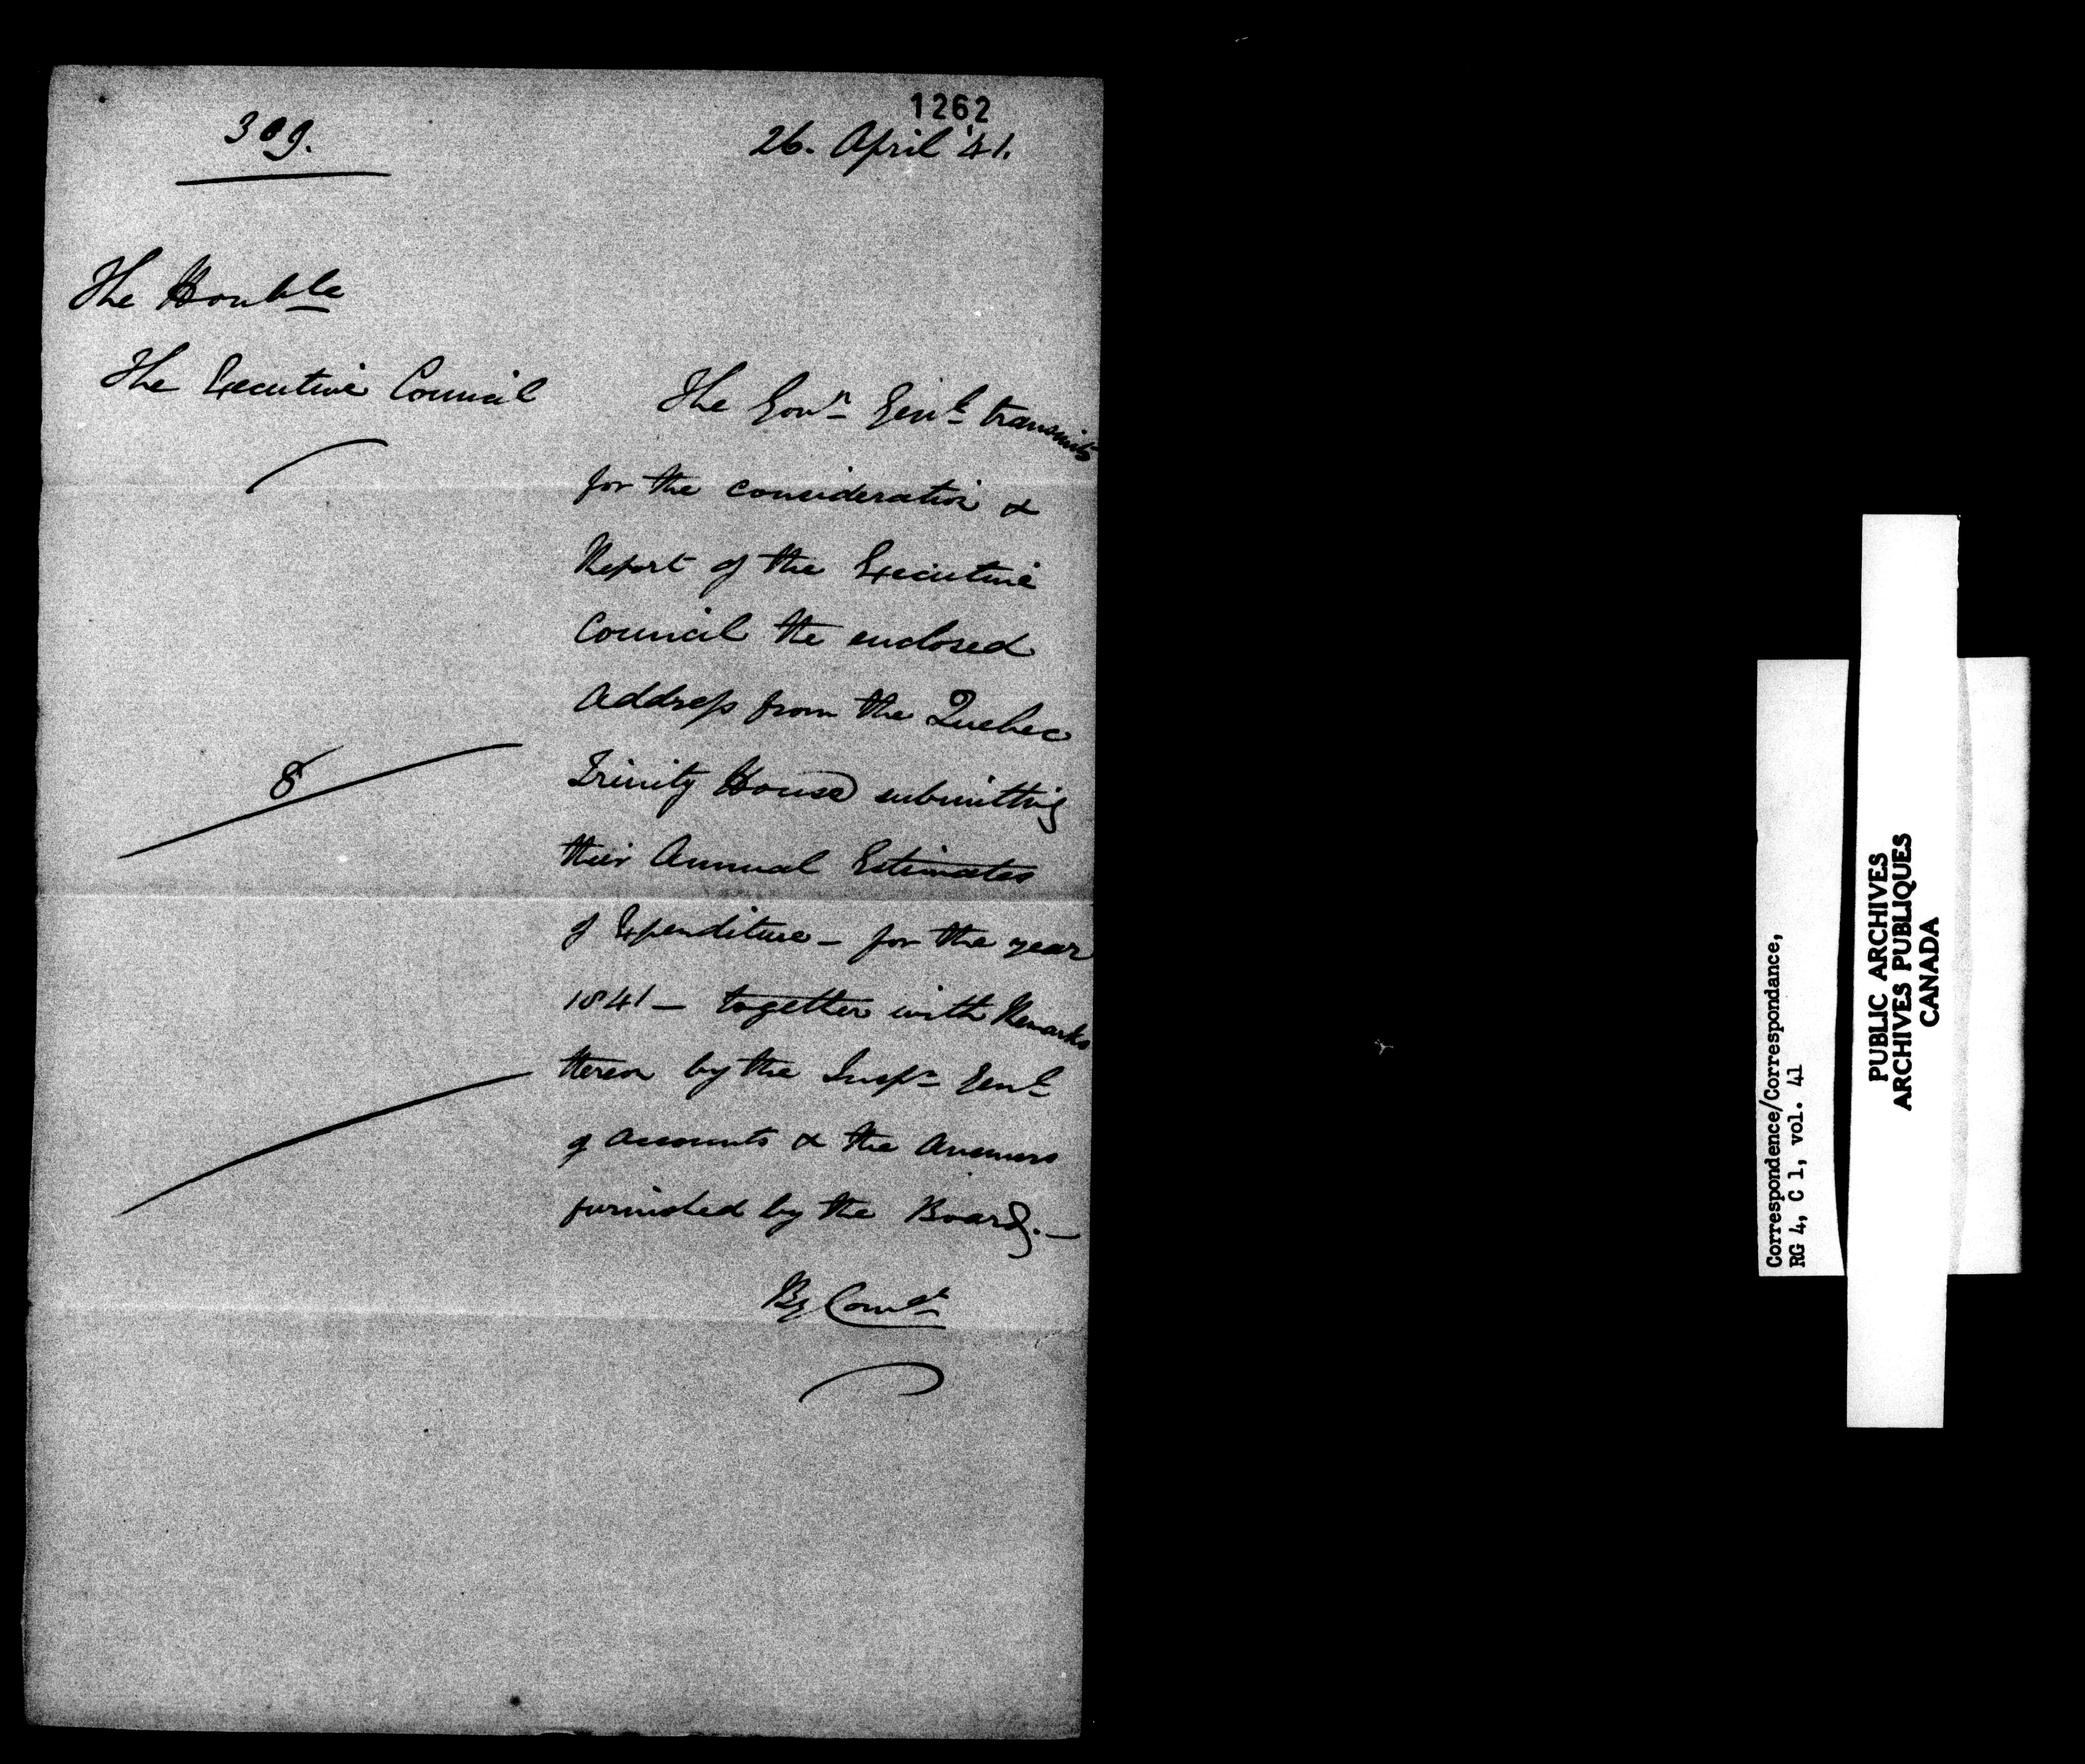 1262
309.
26. April '41.
The Honble
The Executive Council
The Govr Genl transmits
for the consideration &
Report of the Executive
Council the enclosed
Address from the Quebec
Trinity House submitting
8
their Annual Estimates
of Expenditure - for the year
1841 - together with Remarks
thereon by the Inspr Genl
of Accounts & the Answers
furnished by the Board. -
By Comd
Correspondence/Correspondance,
RG 4, C 1, vol. 41
PUBLIC ARCHIVES
ARCHIVES PUBLIQUES
CANADA